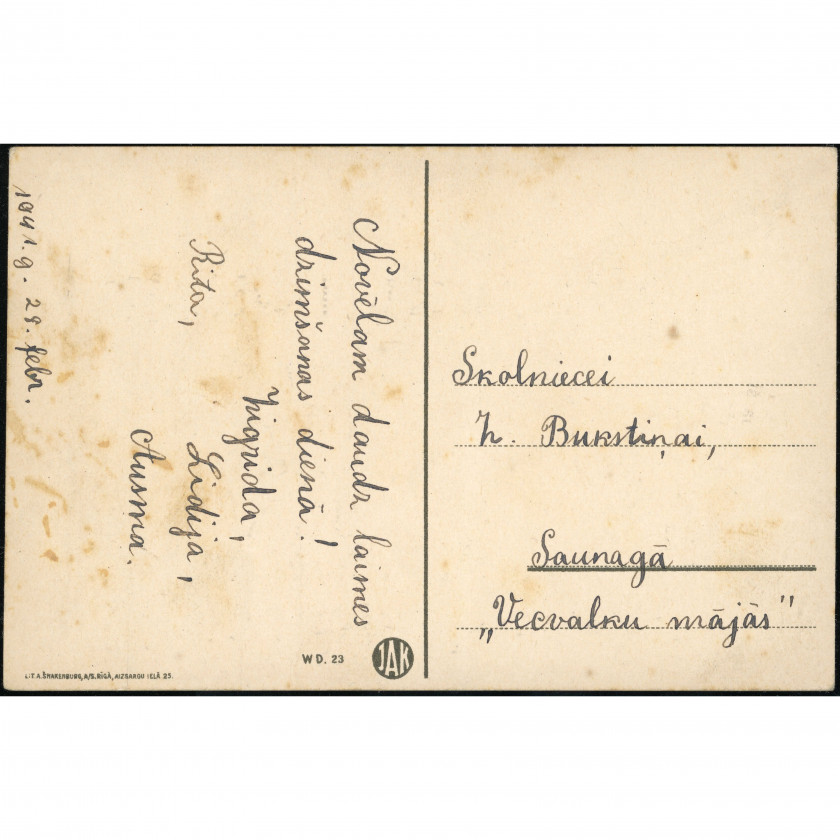 Novēlam daudz laimes
dzimšanas dienā!
Rita,
Zigrida,
Lidija,
Ausma.
1941. g. 28. febr.
Skolniecei
Z. Bukstiņai,
Saunagā
„Vecvalku mājās"
WD. 23
JAK
LIT. A. ŠNAKENBURG, A/S. RĪGĀ, AIZSARGU IELĀ 25.